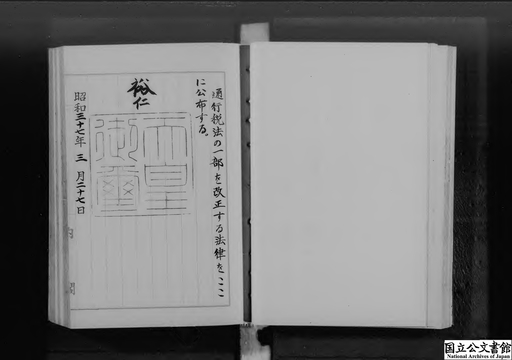 通行税法の一部を改正する法律をここ
に公布する。
裕仁
天皇
御璽
昭和三十七年三月二十七日
国立公文書館
National Archives of Japan